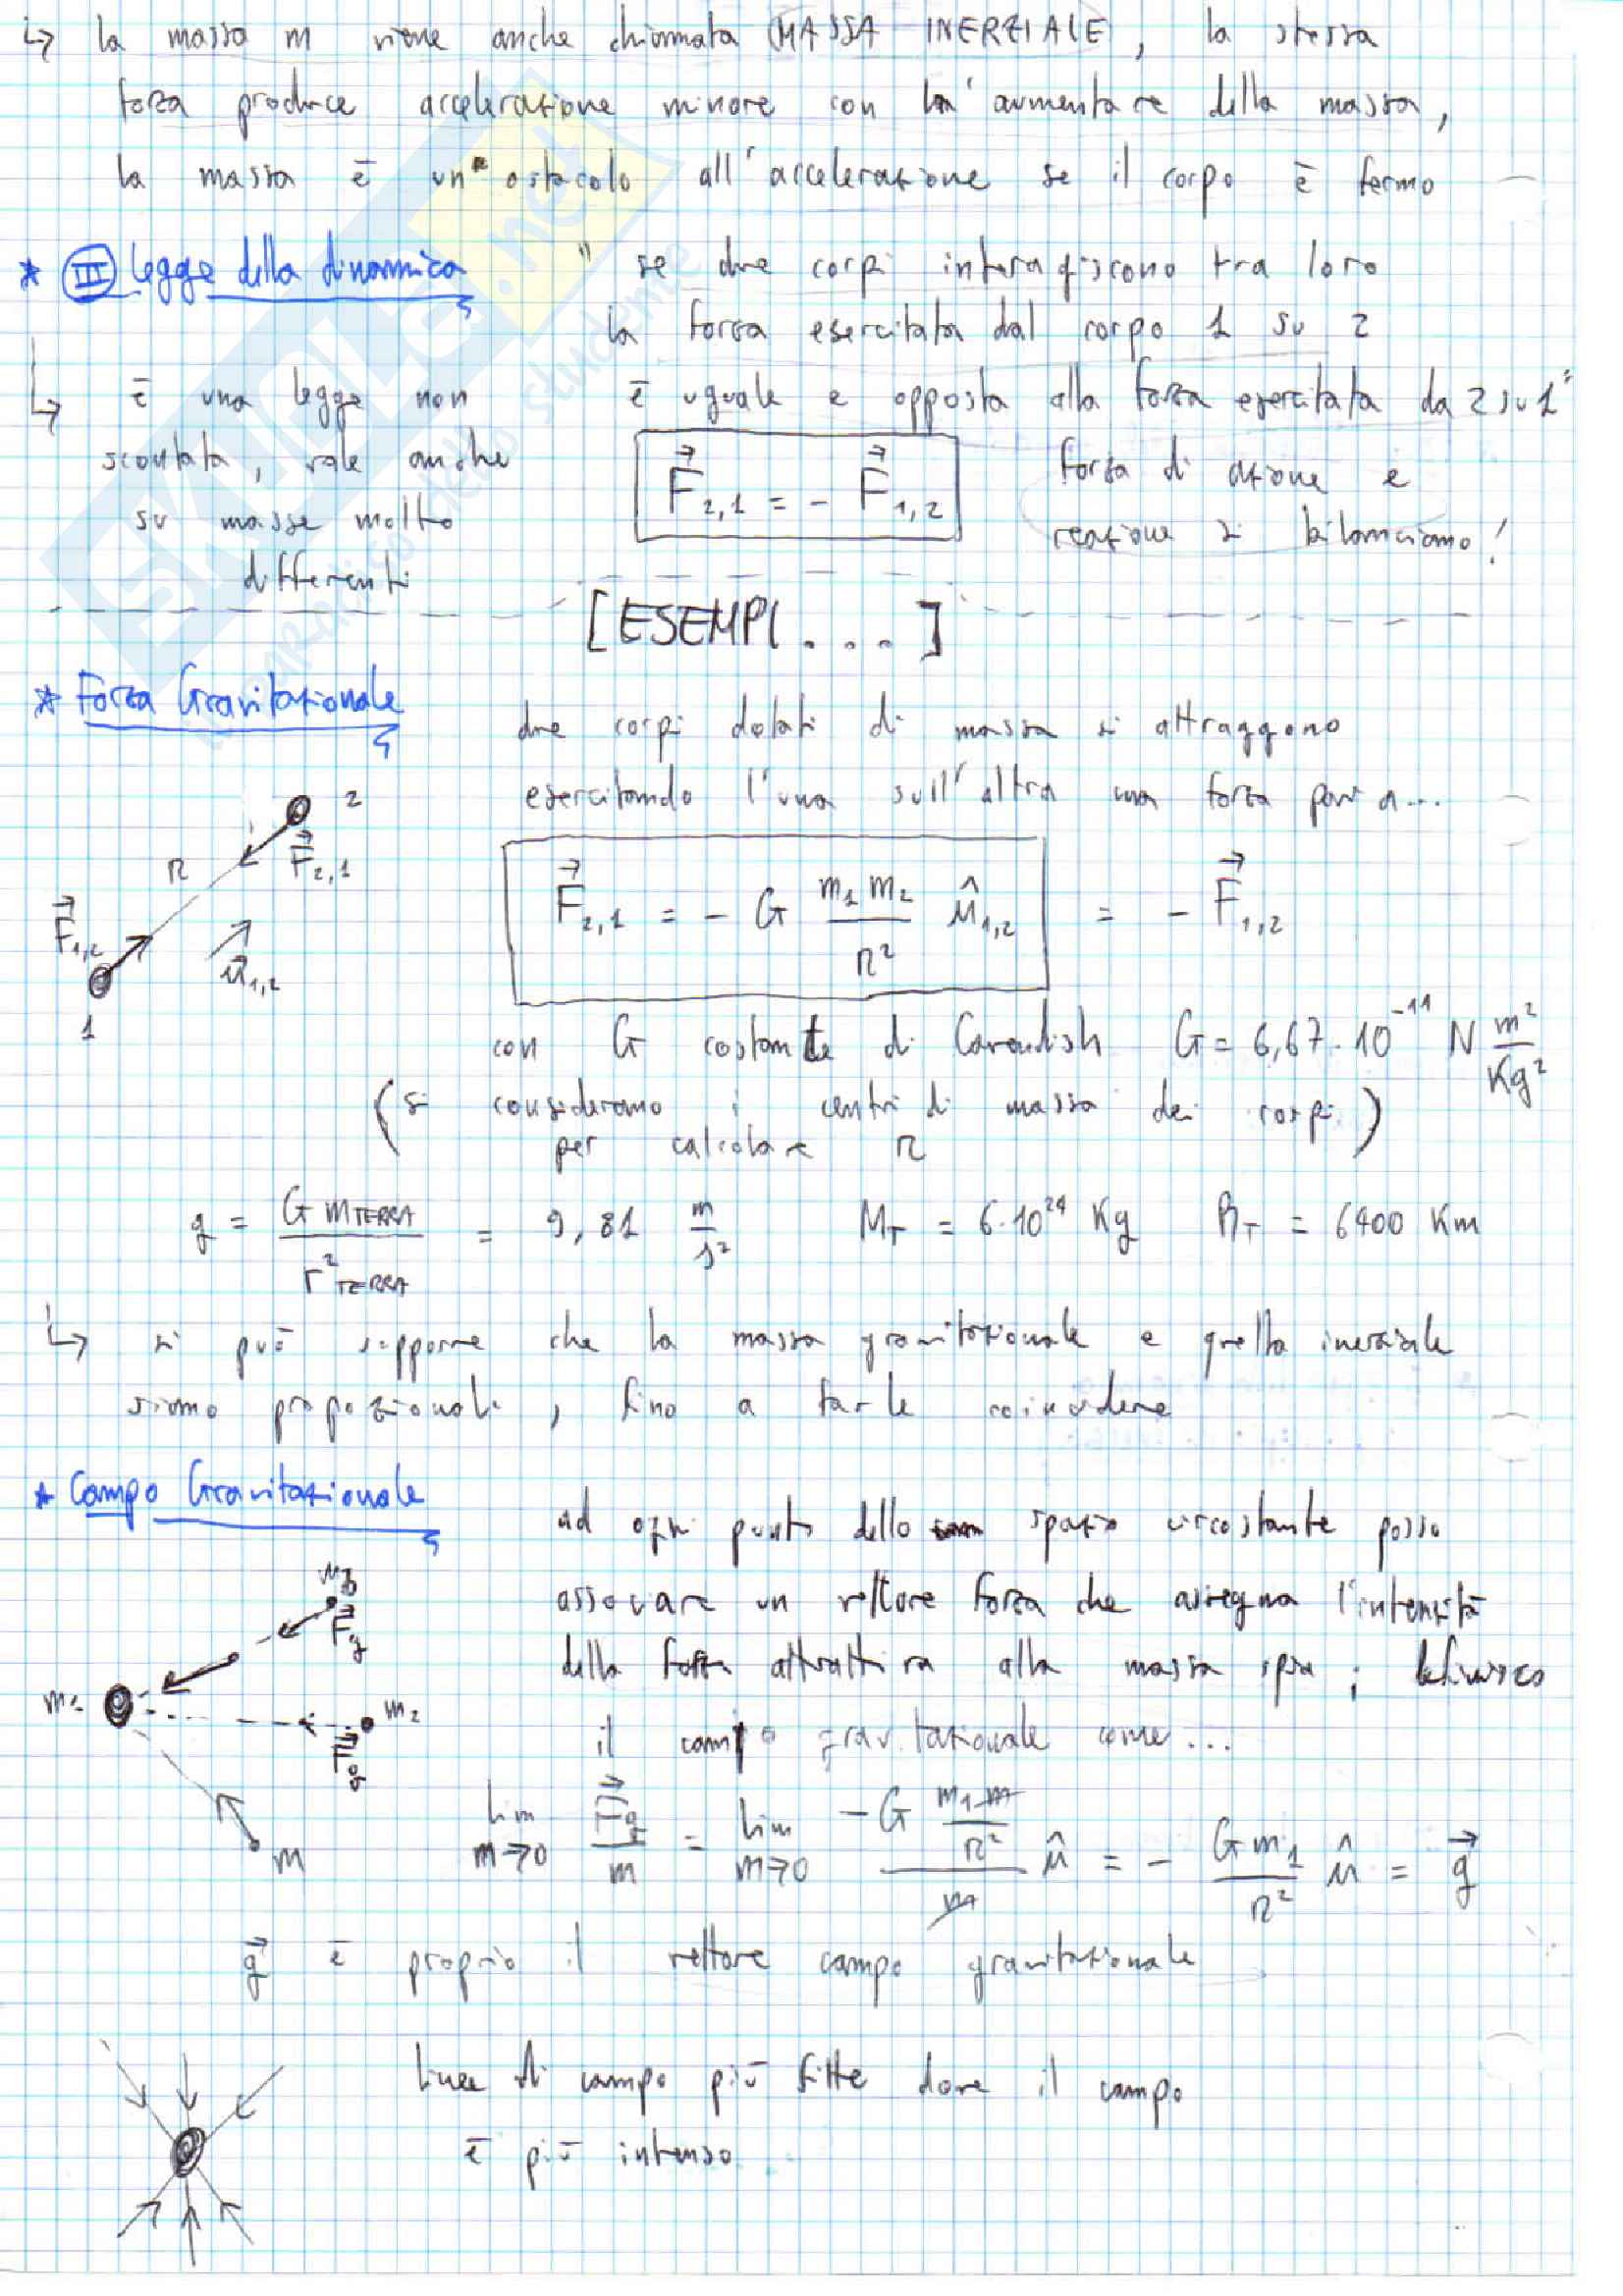 ↳ la massa m viene anche chiamata (MASSA INERZIALE), la stessa
forza produce accelerazione minore con l'aumentare della massa,
la massa è un ostacolo all'accelerazione se il corpo è fermo
* III legge della dinamica " se due corpi interagiscono tra loro
la forza esercitata dal corpo 1 su 2
↳ è una legge non è uguale e opposta alla forza esercitata da 2 su 1"
scontata, vale anche F⃗2,1 = - F⃗1,2 forza di azione e
su masse molto reazione si bilanciano!
differenti
[ESEMPI....]
* Forza Gravitazionale due corpi dotati di massa si attraggono
esercitando l'una sull'altra una forza pari a...
2
R F⃗2,1
F⃗2,1 = - G m1 m2 / R² û1,2 = - F⃗1,2
F⃗1,2 u⃗1,2
1
con G costante di Cavendish G = 6,67 · 10⁻¹¹ N m²/Kg²
(si considerano i centri di massa dei corpi)
per calcolare R
g = G mTERRA / r²TERRA = 9,81 m/s² MT = 6·10²⁴ Kg RT = 6400 Km
↳ si può supporre che la massa gravitazionale e quella inerziale
siano proporzionali, fino a farle coincidere
* Campo Gravitazionale
ad ogni punto dello spazio circostante posso
associare un vettore forza che assegna l'intensità
della forza attrattiva alla massa spia; definisco
il campo gravitazionale come...
m3 F⃗g
m1 m2
F⃗g
m
lim m→0 F⃗g / m = lim m→0 -G m1 m / R² / m û = - G m1 / R² û = g⃗
g⃗ è proprio il vettore campo gravitazionale
linee di campo più fitte dove il campo
è più intenso
SKUOLA.net